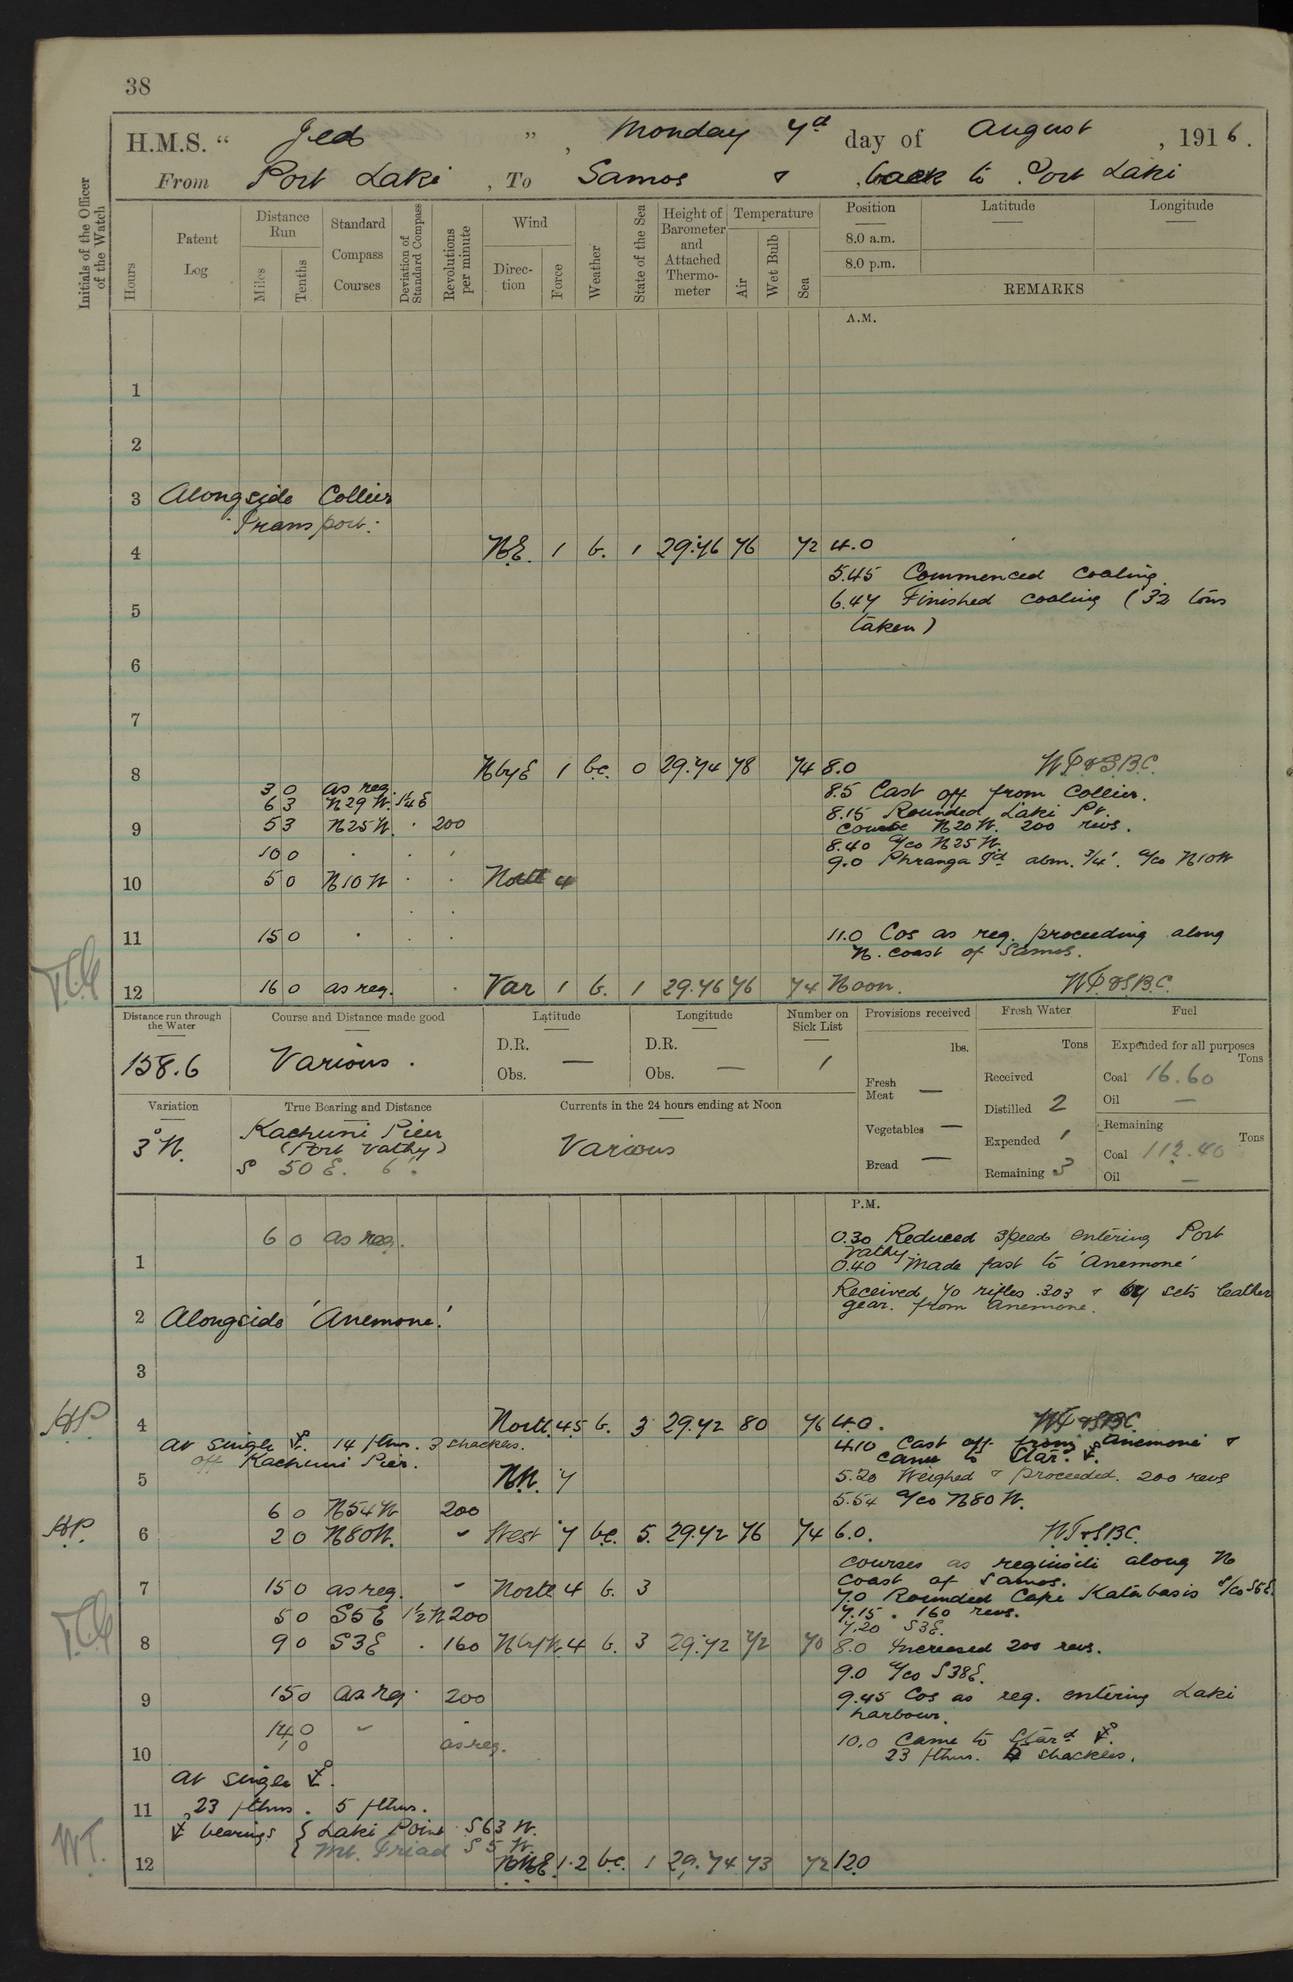 38
H.M.S. " Jed ", Monday 7th day of August, 1916.
From Port Laki, To Samos & back to Port Laki
Initials of the Officer of the Watch
Hours
Patent Log
Distance Run
Miles
Tenths
Standard Compass Courses
Deviation of Standard Compass
Revolutions per minute
Wind
Direction
Force
Weather
State of the Sea
Height of Barometer and Attached Thermometer
Temperature
Air
Wet Bulb
Sea
Position
8.0 a.m.
8.0 p.m.
Latitude
Longitude
REMARKS
A.M.
1
2
3 Alongside Collier
Transport.
4 N.E. 1 b. 1 29.76 76 72 4.0
5.45 Commenced coaling.
5 6.47 Finished coaling (32 tons
taken)
6
7
8 NbyE 1 b.c. 0 29.74 78 74 8.0 WP&SBC.
3 0 as reg. 8.5 Cast off from Collier.
6 3 N29W. 1¼E 8.15 Rounded Laki Pt.
9 5 3 N25W. . 200 course N20W. 200 revs.
8.40 a/co N25W.
10 0 . . , 9.0 Phranga Id abm. 3/4'. a/co N10W
10 5 0 N10W . . North 4
11 15 0 . . . 11.0 Cos as reg. proceeding along
N. coast of Samos.
12 16 0 as reg. . Var 1 b. 1 29.76 76 74 Noon. WP&SBC.
Distance run through the Water
158.6
Course and Distance made good
Various.
Latitude
D.R.
Obs. —
Longitude
D.R.
Obs. —
Number on Sick List
1
Provisions received
lbs.
Fresh Meat —
Vegetables —
Bread —
Fresh Water
Tons
Received
Distilled 2
Expended 1
Remaining 3
Fuel
Expended for all purposes
Tons
Coal 16.60
Oil —
Remaining
Tons
Coal 112.40
Oil —
Variation
3°W.
True Bearing and Distance
Kachuni Pier
(Port Vathy)
S 50 E. 6'.
Currents in the 24 hours ending at Noon
Various
P.M.
6 0 as reg. 0.30 Reduced speed entering Port
Vathy.
1 0.40 Made fast to 'Anemone'
Received 70 rifles .303 & sets leather
gear. from Anemone.
2 Alongside 'Anemone'.
3
H.P.
4 North 4.5 b. 3 29.72 80 76 4.0. WP&SBC.
At single ⚓. 14 fthms. 3 shackles. 4.10 Cast off from Anemone &
off Kachuni Pier. came to Star. ⚓.
5 N.W. 7 5.20 Weighed & proceeded. 200 revs
5.54 a/co N80W.
6 0 N54W 200
H.P.
6 2 0 N80W. " West 7 b.c. 5. 29.72 76 74 6.0. WP&SBC.
courses as requisite along N
coast of Samos.
7 15 0 as reg. " North 4 b. 3 7.0 Rounded Cape Katabasis a/co S5E.
5 0 S5E 1½W 200 7.15 . 160 revs.
7.20 S3E.
8 9 0 S3E . 160 NbyW. 4 b. 3 29.72 72 70 8.0 Increased 200 revs.
9.0 a/co S38E.
9 15 0 as reg. 200 9.45 Cos as reg. entering Laki
harbour.
14 0 "
1 0 as reg. 10.0 Came to Stard ⚓.
10 23 fthms. shackles.
At single ⚓.
11 23 fthms. 5 fthms.
⚓ bearings { Laki Point S63W.
{ Mt. Triad S5W.
W.T.
12 NNE 1.2 b.c. 1 29.74 73 72 12.0